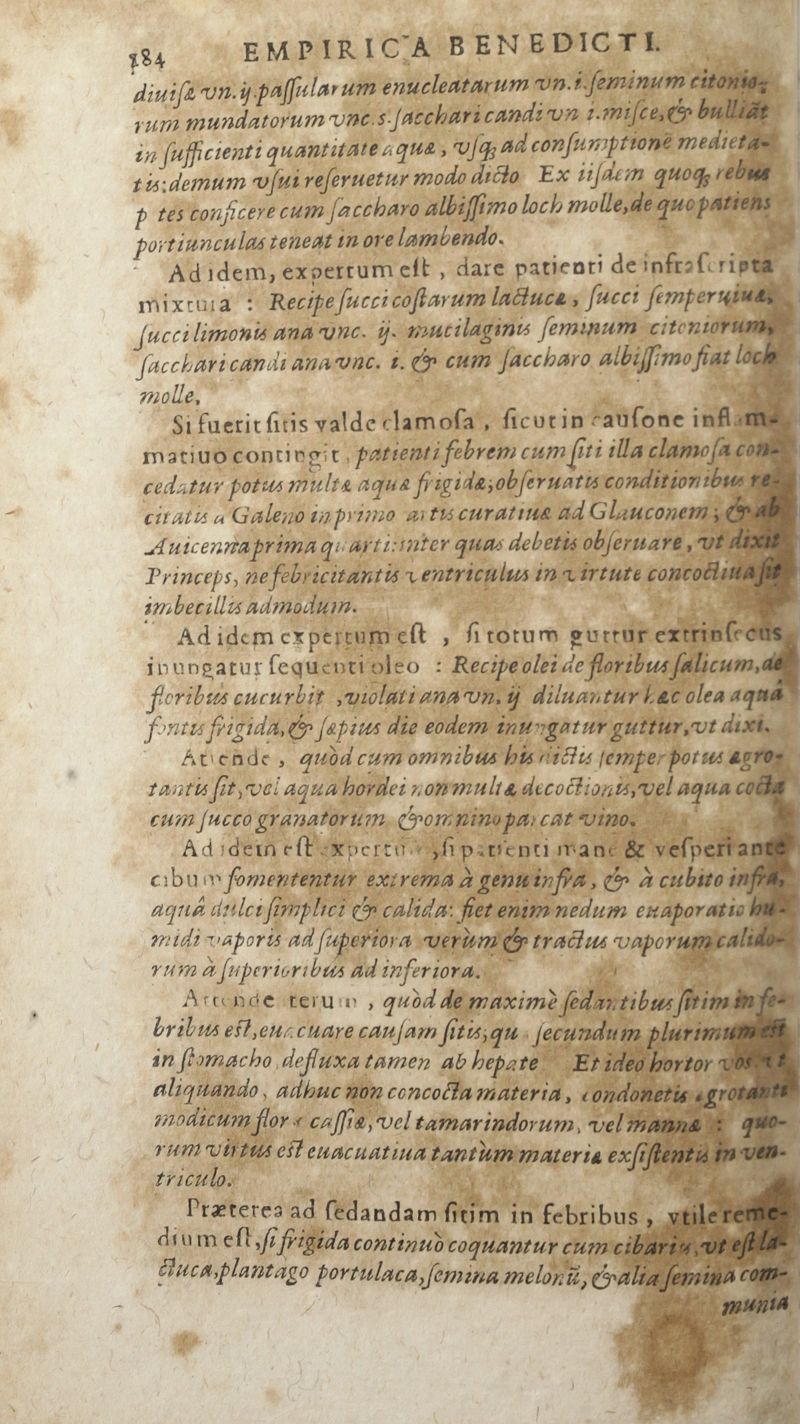 184 EMPIRICA BENEDICTI.
diuisæ vn. ij. passularum enucleatarum vn. i. seminum citonio-
rum mundatorum vnc. s. sacchari candi vn i. misce, & bulliāt
in sufficienti quantitate aquæ, vsq; ad consumptionē medieta-
tis: demum vsui reseruetur modo dicto Ex iisdem quoq; rebus
p tes conficere cum saccharo albissimo loch molle, de quo patiens
portiunculas teneat in ore lambendo.
Ad idem, expertum est, dare patienti de infrascripta
mixtura : Recipe succi costarum lactucæ, succi semperuiuæ,
succi limonis ana vnc. ij. mucilaginis seminum citoniorum,
sacchari candi ana vnc. i. & cum saccharo albissimo fiat loch
molle,
Si fuerit sitis valde clamosa, sicut in causone inflam-
matiuo contingit, patienti febrem cum siti illa clamosa con-
cedatur potus multæ aquæ frigidæ, obseruatis conditionibus re-
citatis a Galeno in primo artis curatiuæ ad Glauconem; & ab
Auicenna prima quarti: inter quas debetis obseruare, vt dixit
Princeps, ne febricitantis ventriculus in virtute concoctiua sit
imbecillis admodum.
Ad idem expertum est, si totum guttur extrinsecus
inungatur sequenti oleo : Recipe olei de floribus salicum, de
floribus cucurbit , violati ana vn. ij diluantur hæc olea aqua
fontis frigida, & sæpius die eodem inungatur guttur, vt dixi.
Attende, quòd cum omnibus his dictis semper potus ægro-
tantis sit, vel aqua hordei non multæ decoctionis, vel aqua cocta
cum succo granatorum & omnino parcat vino.
Ad idem est expertum, si patienti mane & vesperi ante
cibum fomententur extrema à genu infra, & à cubito infra,
aquâ dulci simplici & calida: fiet enim nedum euaporatio hu-
midi vaporis ad superiora verùm & tractus vaporum calido-
rum à superioribus ad inferiora.
Attende iterum, quòd de maximè sedantibus sitim in fe-
bribus est, euacuare causam sitis, qu secundum plurimum est
in stomacho, defluxa tamen ab hepate Et ideo hortor vos vt
aliquando, adhuc non concocta materia, condonetis ægrotanti
modicum flor cassiæ, vel tamarindorum, vel mannæ : quo-
rum virtus est euacuatiua tantùm materiæ existentis in ven-
triculo.
Præterea ad sedandam sitim in febribus, vtile reme-
dium est, si frigida continuò coquantur cum cibariis, vt est la-
ctuca, plantago portulaca, semina melonū, & alia semina com-
munia